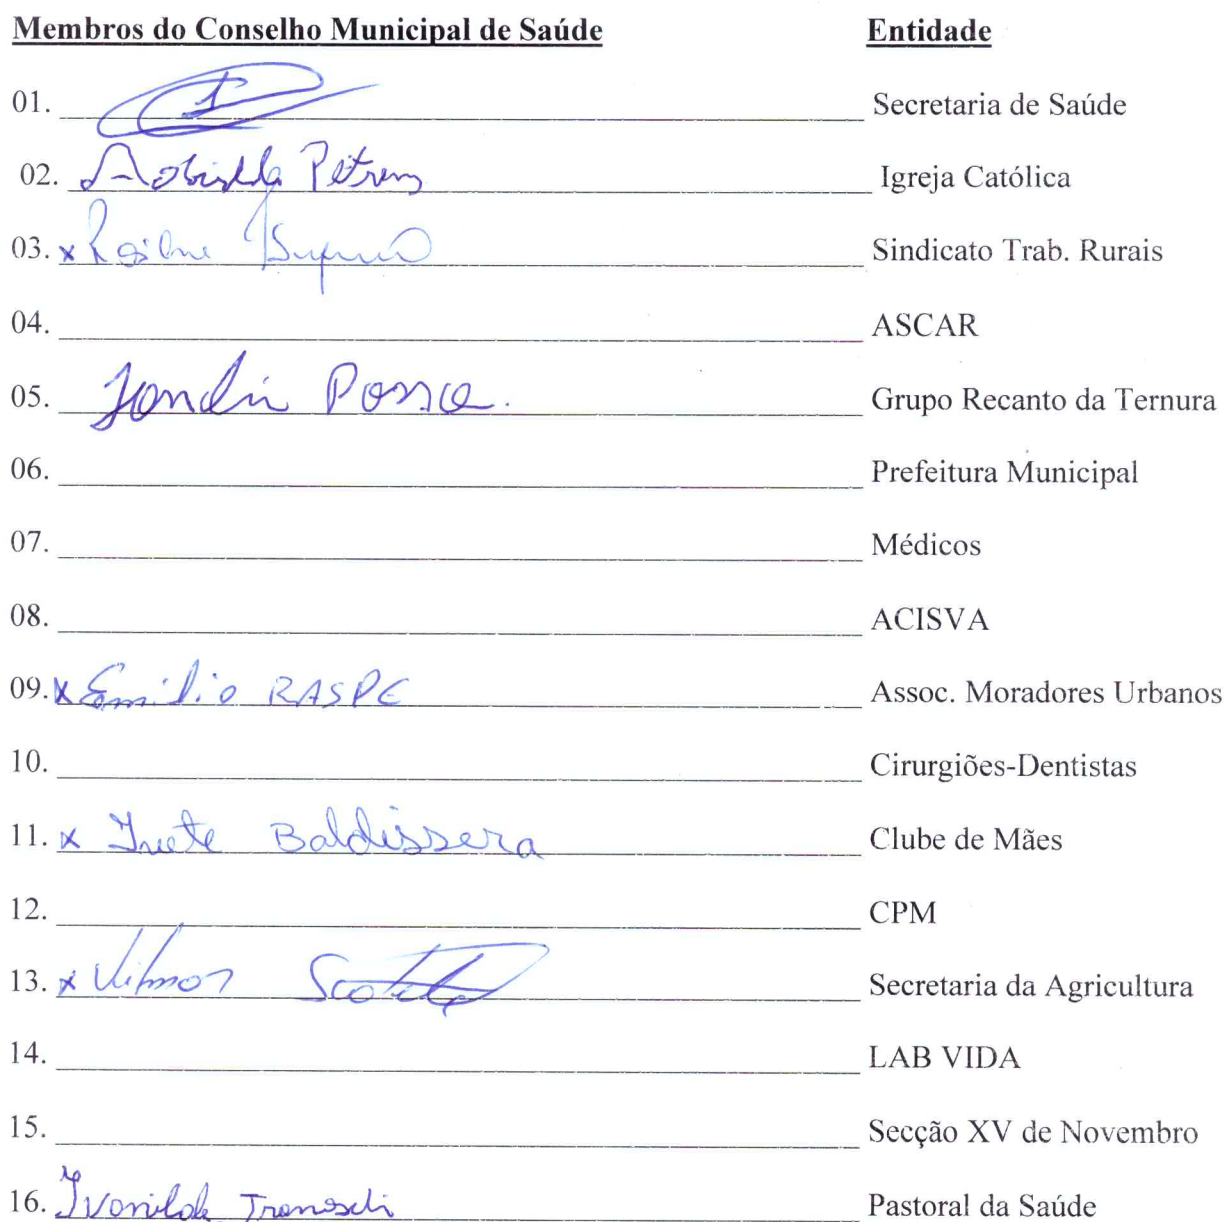 Membros do Conselho Municipal de Saúde Entidade
01. Secretaria de Saúde
02. Igreja Católica
03. x Sindicato Trab. Rurais
04. ASCAR
05. Grupo Recanto da Ternura
06. Prefeitura Municipal
07. Médicos
08. ACISVA
09. x Emilio RASPE Assoc. Moradores Urbanos
10. Cirurgiões-Dentistas
11. x Ivete Baldissera Clube de Mães
12. CPM
13. x Vilmar Secretaria da Agricultura
14. LAB VIDA
15. Secção XV de Novembro
16. Pastoral da Saúde